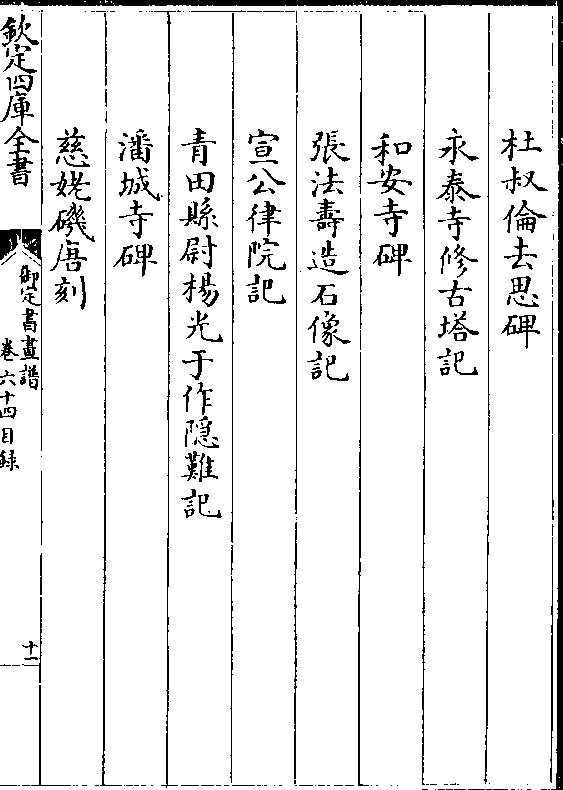 杜叔倫去思碑
永泰寺修古塔記
和安寺碑
張法壽造石像記
宣公律院記
青田縣尉楊光于作隠難記
潘城寺碑
慈姥磯唐刻
欽定四庫全書
御定書畫譜
卷六十四目録
十一